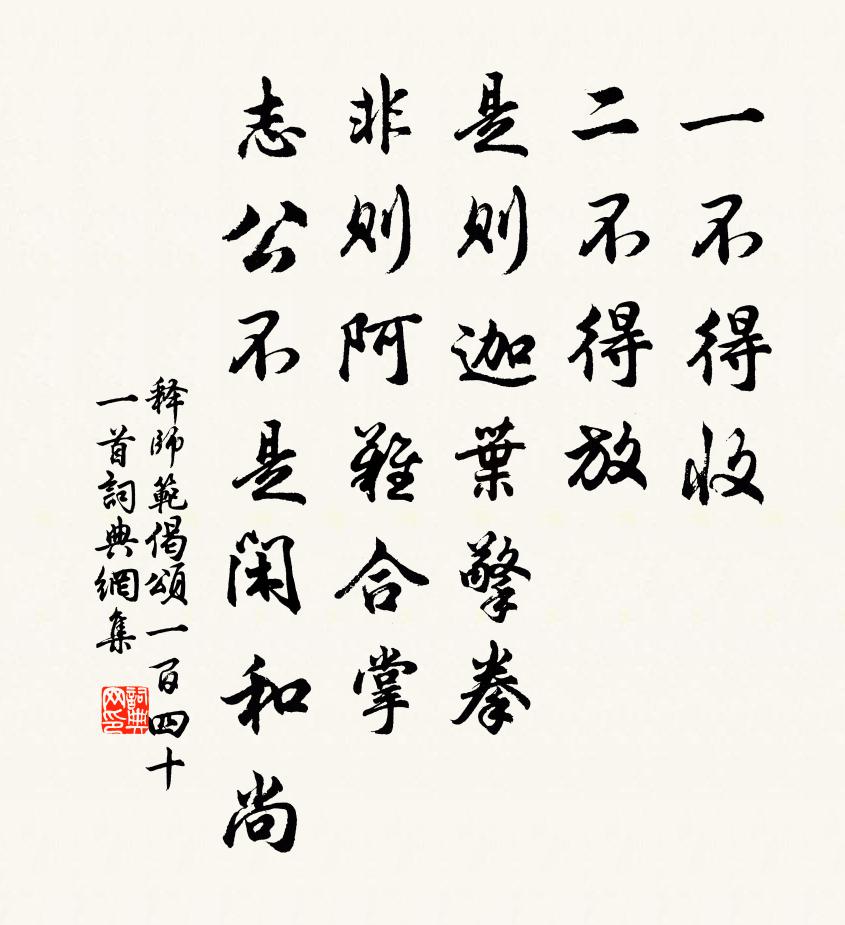 一不得收
二不得放
是则迦葉擎拳
非则阿難合掌
志公不是閑和尚
释師範偈頌一百四十
一首詞典網集
詞典网印